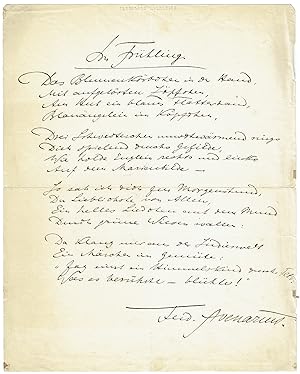 Im Frühling.
Das Blumenkörbchen in der Hand,
Mit aufgelösten Zöpfchen,
Am Hut ein blaues Flatterband,
Blauäuglein im Köpfchen,
Drei Schwesterchen rings
Dich spielend durchs Gefilde,
Wie holde Englein rechts und links
Auf dem Marienbilde –
So sah ich dich zur Morgenstund,
Du Lieblichste von Allen,
Ein helles Liedchen auf dem Mund
Durch grüne Wiesen wallen.
Da klang mir aus der Jugendzeit
Ein Märchen im Gemüte:
„Ging einst ein Himmelskind durchs
Was es berührte – blühte!"
Ferd. Avenarius.